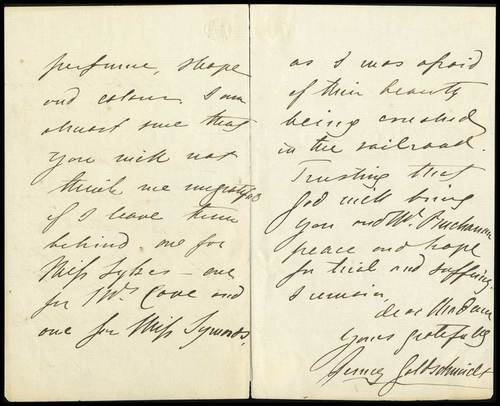 perfume, shape
and colour I am
almost sure that
you will not
think me ungrateful
if I leave them
behind one for
Miss Sykes – one
for Mrs Cove and
one for Miss Symonds,
as I was afraid
of their beauty
being crushed
in the railroad.
Trusting that
God will bring
you and Mr. Buchanan
peace and hope
for trial and suffering.
I remain,
dear Madam
yours gratefully
Jenny Goldschmidt